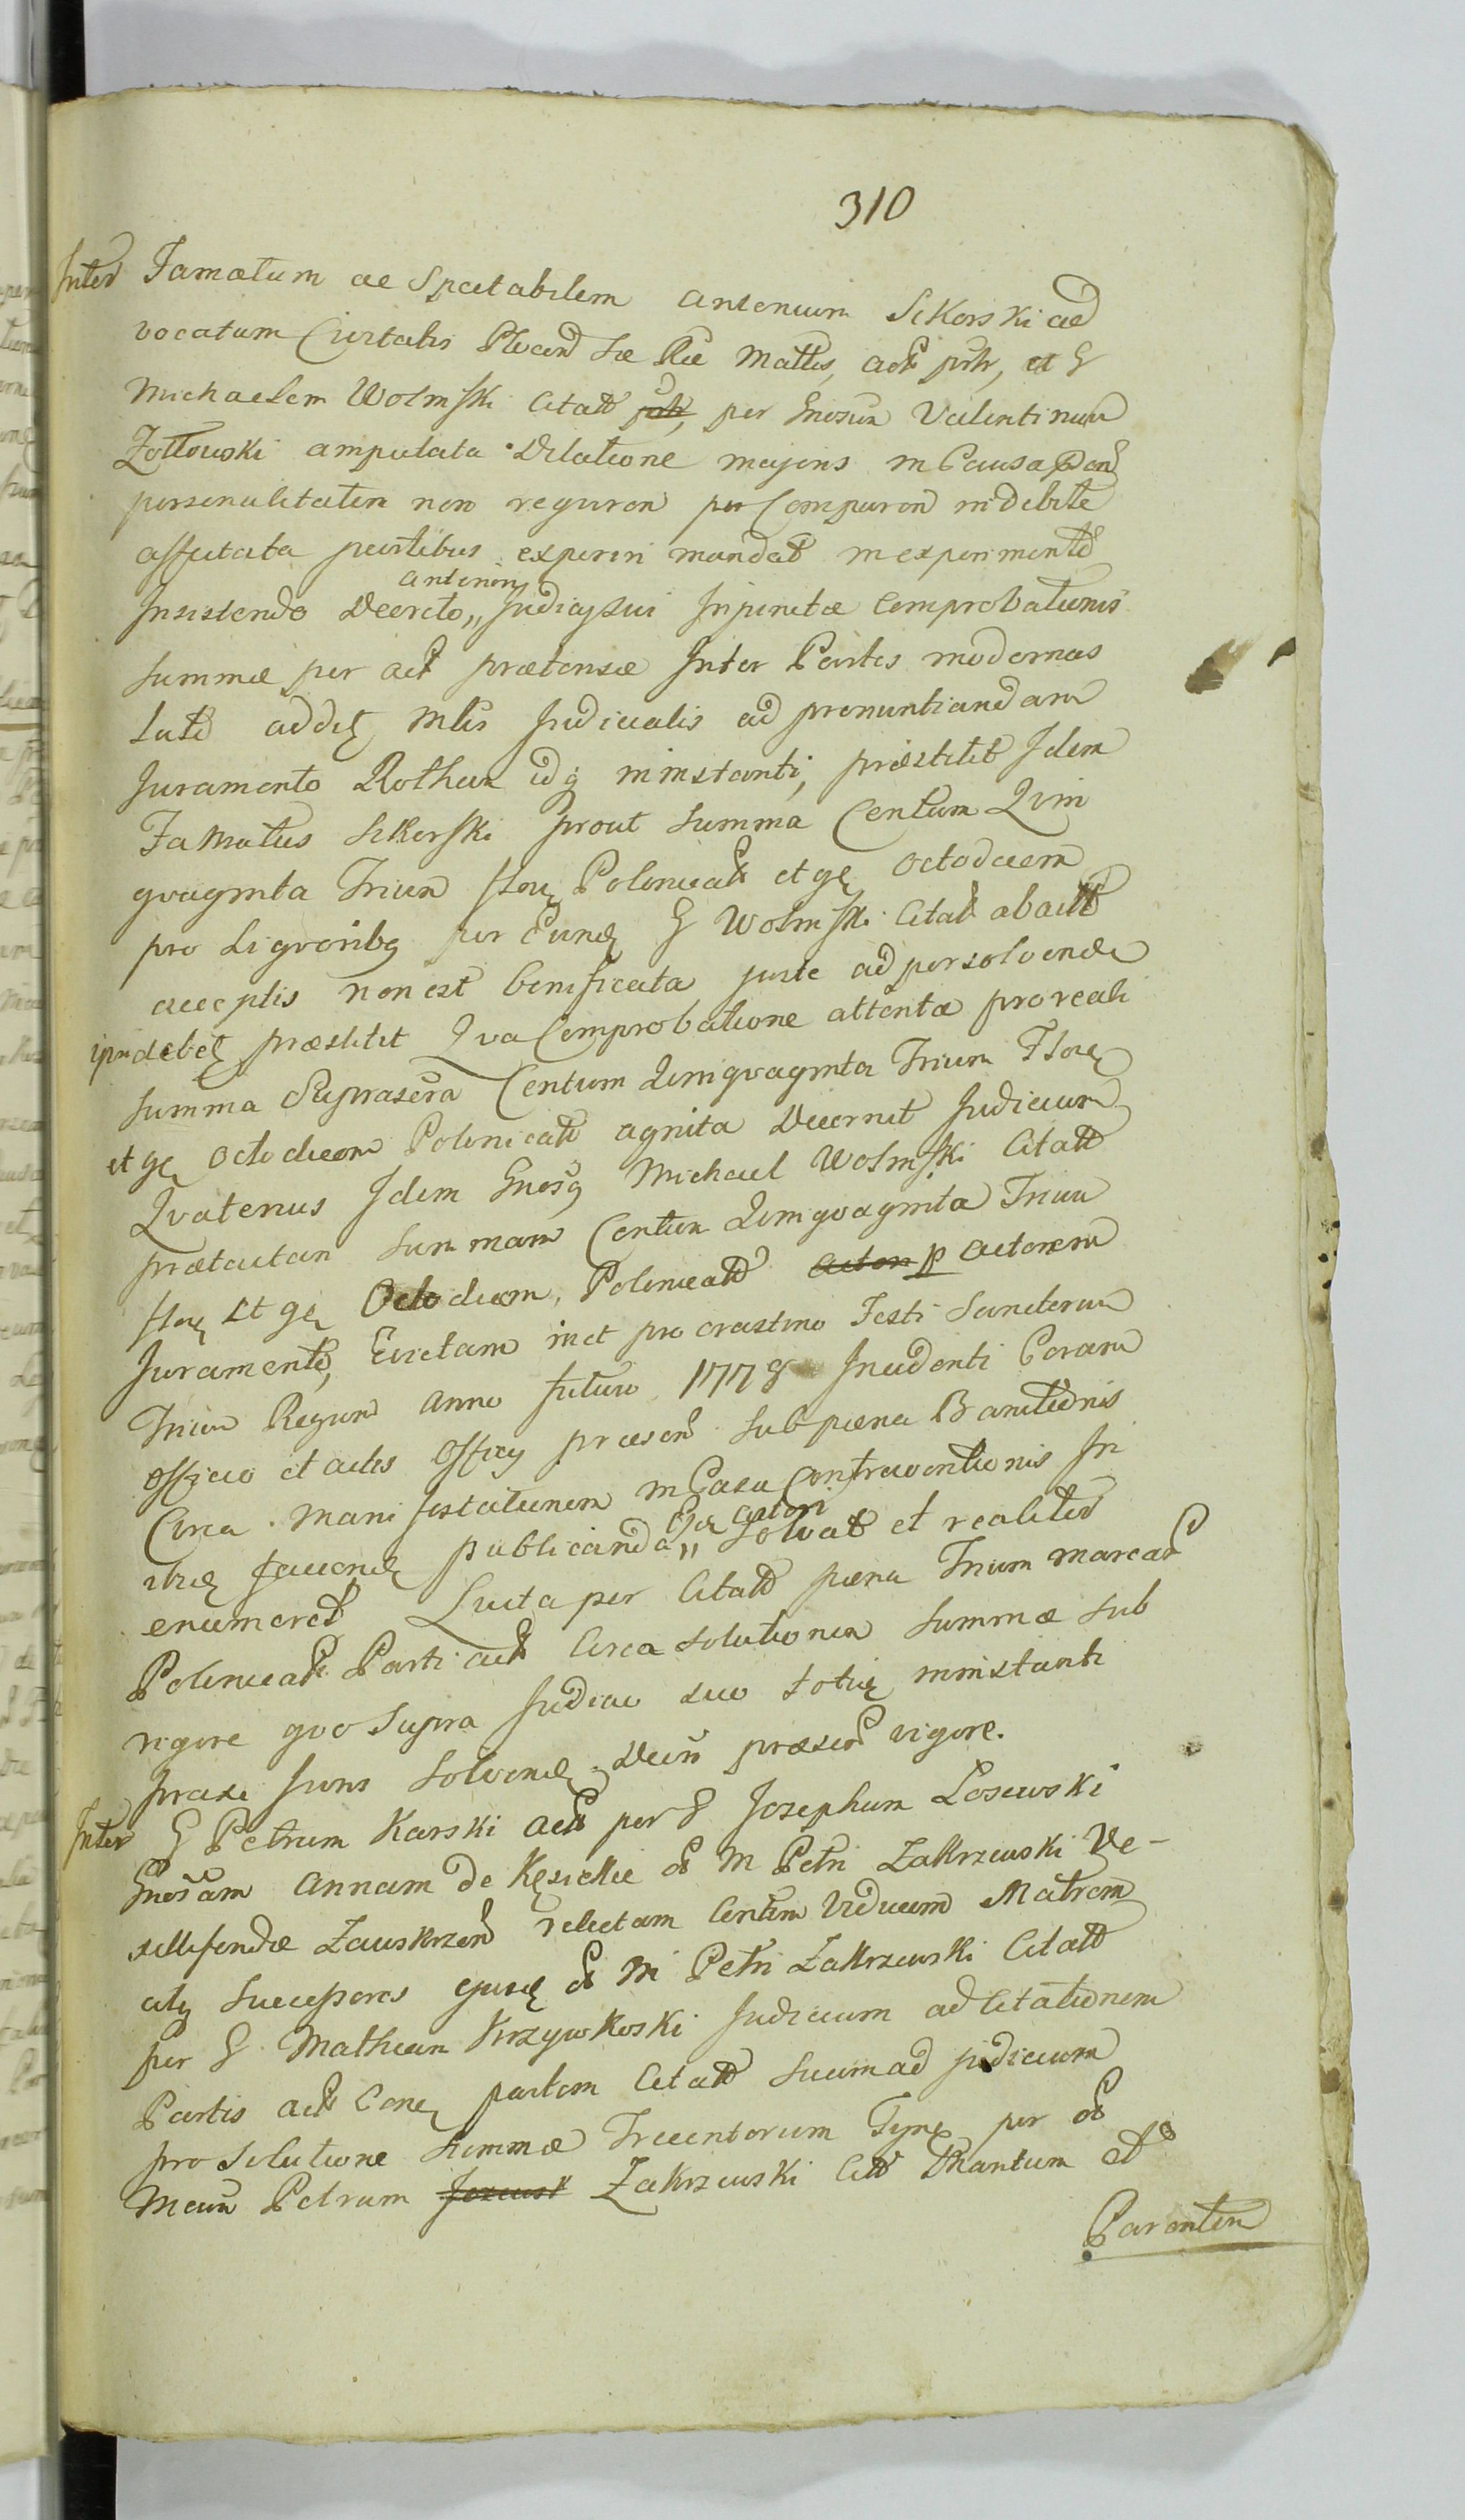 310
Inter Famatum ac Spectabilem Antonium Sikorski ad
vocatum Civitatis Plocen Sæ Ræ Mattis, act psth, et G
Michaelem Wolinski Citatt per Gnosum Valentinum
Żółtowski amputata Dilatione majoris in Causa
personalitatem non requiren per Comparen indebite
affectata partibus experiri mandat in experimento
Insistendo Decreto,, anteriori Judicij sui Injunctæ Comprobationis
Summæ per act prætensæ Inter Partes modernas
latô addit Mlis Judicialis ad pronuntiandam
Juramento Rotham idq in instanti, præstitit Idem
Famatus Sikorski prout Summa Centum Quin
quaginta Trium flor Polonicat et gr Octodecem
pro Liquoribq per Eund G Wolinski Citatt ab actt
acceptis non est bonificata juste ad persolvendu
ipsi debet præstitit Qva Comprobatione attenta pro reali
Summa Suprascra Centum Quinquaginta Trium Flor
et gr Octodecem Polonicatt agnita Decernit Judicium
Quatenus Idem Gnosq Michael Wolinski Citatt
prætactam Summam Centum Quinquaginta Trium
flor et gr Octodecem, Polonicatt p actorem
Juramento, Evictam in et pro crastino Festi Sanctorum
Trium Regum Anno futuro 1778 Incidenti Coram
Officio et actis Officij præsen Sub pæna Banitionis
Circa Manifestationem in Casu Contraventionis In
ibid faciend publicanda,, Eid Actori Solvat et realiter
enumeret Luita per Citatt pæna Trium marcar
Polonicatt Parti act Circa Solutionem Summæ sub
rigore quo Supra Judicio suo totid in instanti
praxi Juris Solvend Decri præsen vigore.
Inter G Petrum Karski Act per G Josephum Łosewski
Gnosam Annam de Kęsickie ol M Petri Zakrzewski Ve-
xilliferidæ Zawskrzen relictam Consm Viduam Matrem
atq Successores ejusd ol M Petri Zakrzewski Citatt
per G Matheum Krzywkoski Judicium ad Citationem
Partis act Cone partem Citatt Suum ad judicium
pro Solutione Summæ Trecentorum Tynf per ol
Mcum Petrum Zakrzewski Citt Maritum et
Parentem